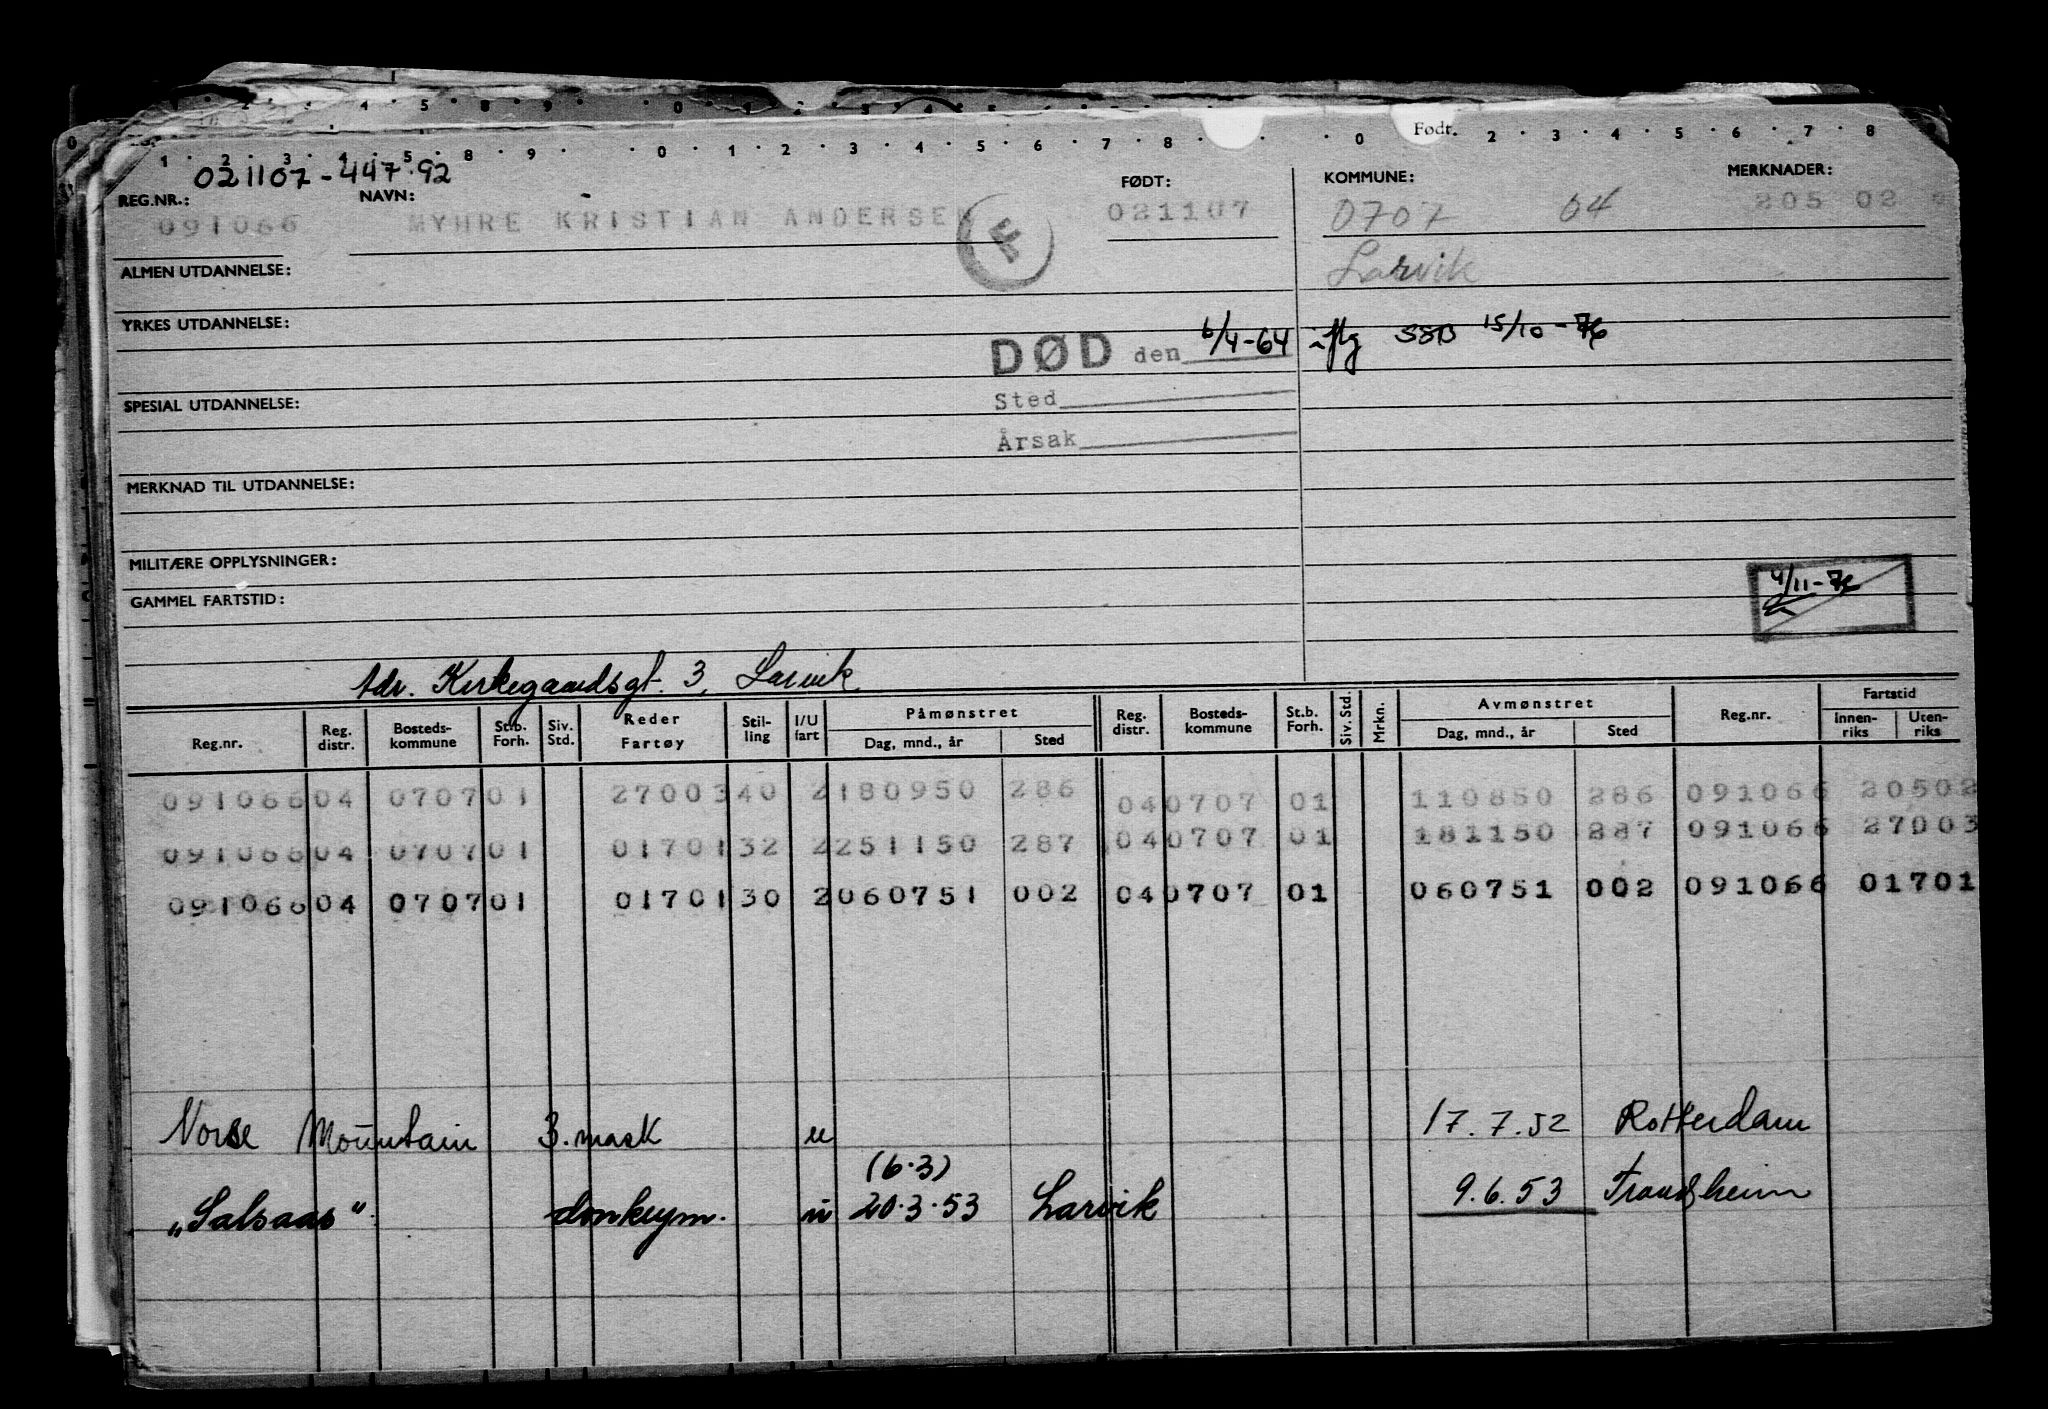 Født.
021107-447.92
REG.NR.: NAVN: FØDT: KOMMUNE: MERKNADER:
091066 MYHRE KRISTIAN ANDERSEN 021107 0707 04 205 02
F
ALMEN UTDANNELSE: Larvik
YRKES UTDANNELSE:
DØD den 6/4-64 iflg SSB 15/10-76
SPESIAL UTDANNELSE: Sted
Årsak
MERKNAD TIL UTDANNELSE:
MILITÆRE OPPLYSNINGER:
4/11-76
GAMMEL FARTSTID:
Adr. Kirkegaardsgt. 3, Larvik
Reg.nr. Reg. distr. Bosteds-kommune St.b. Forh. Siv. Std. Reder Fartøy Stil-ling I/U fart Påmønstret Dag, mnd., år Sted Reg. distr. Bosteds-kommune St.b. Forh. Siv. Std. Mrkn. Avmønstret Dag, mnd., år Sted Reg.nr. Fartstid Innen-riks Uten-riks
091066 04 0707 01 27003 40 2 180950 286 04 0707 01 110850 286 091066 20502
091066 04 0707 01 01701 32 2 251150 287 04 0707 01 181150 287 091066 27003
091066 04 0707 01 01701 30 2 060751 002 04 0707 01 060751 002 091066 01701
Norse Mountain 3. mask u 17.7.52 Rotterdam
(6.3)
"Salsaas" donkeym. u 20.3.53 Larvik 9.6.53 Trondheim